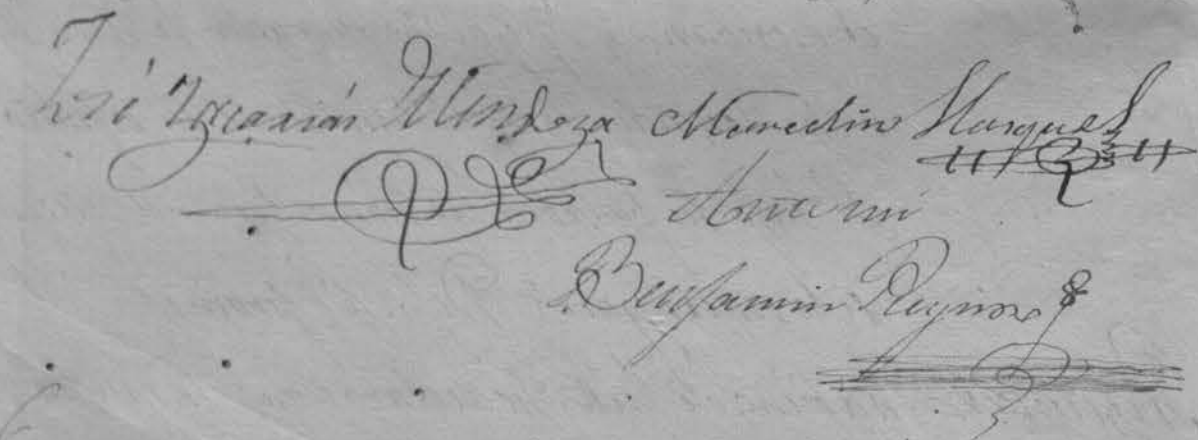 José Ygnasias Mendoza Marcelino Marquez
Ante mi
Benjamin Reynoso